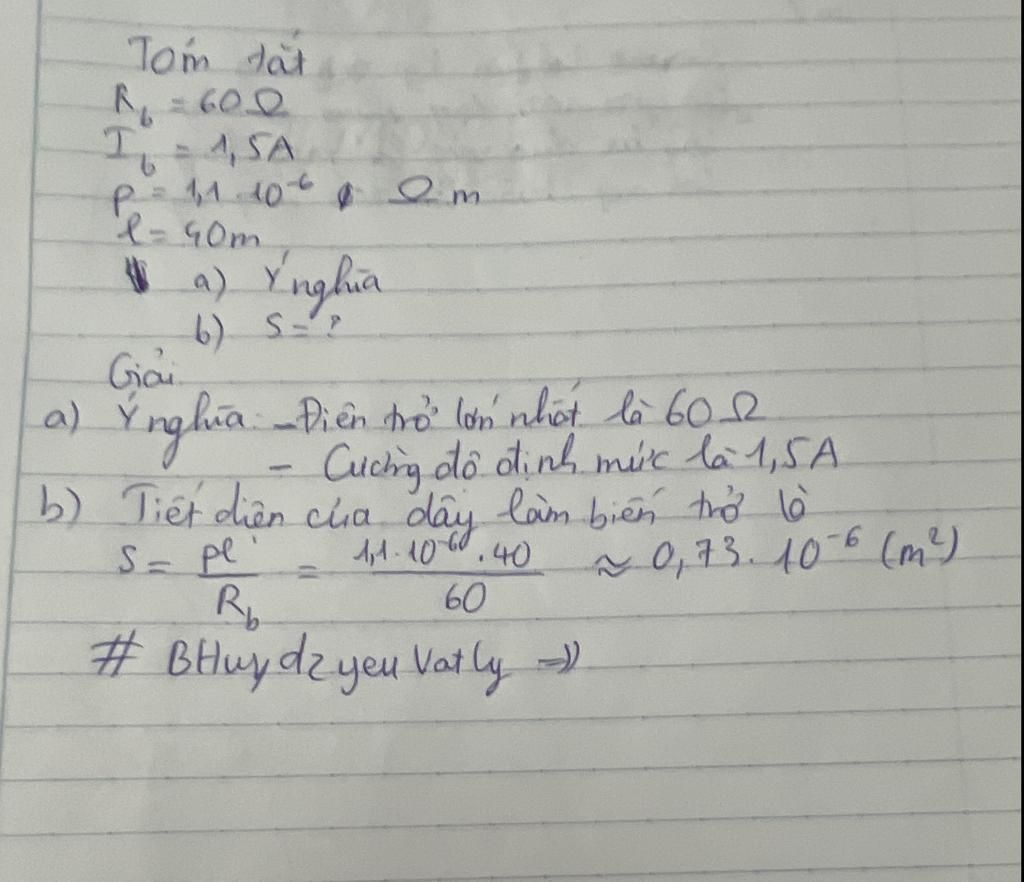 Tóm tắt
R_b = 60Ω
I_b = 1,5A
ρ = 1,1.10⁻⁶ Ωm
l = 40m
a) Ý nghĩa
b) S = ?
Giải
a) Ý nghĩa: - Điện trở lớn nhất là 60Ω
- Cường độ định mức là 1,5A
b) Tiết diện của dây làm biến trở là
S = ρl / R_b = 1,1.10⁻⁶.40 / 60 ≈ 0,73.10⁻⁶ (m²)
# BHuy dz yeu Vat Ly =))